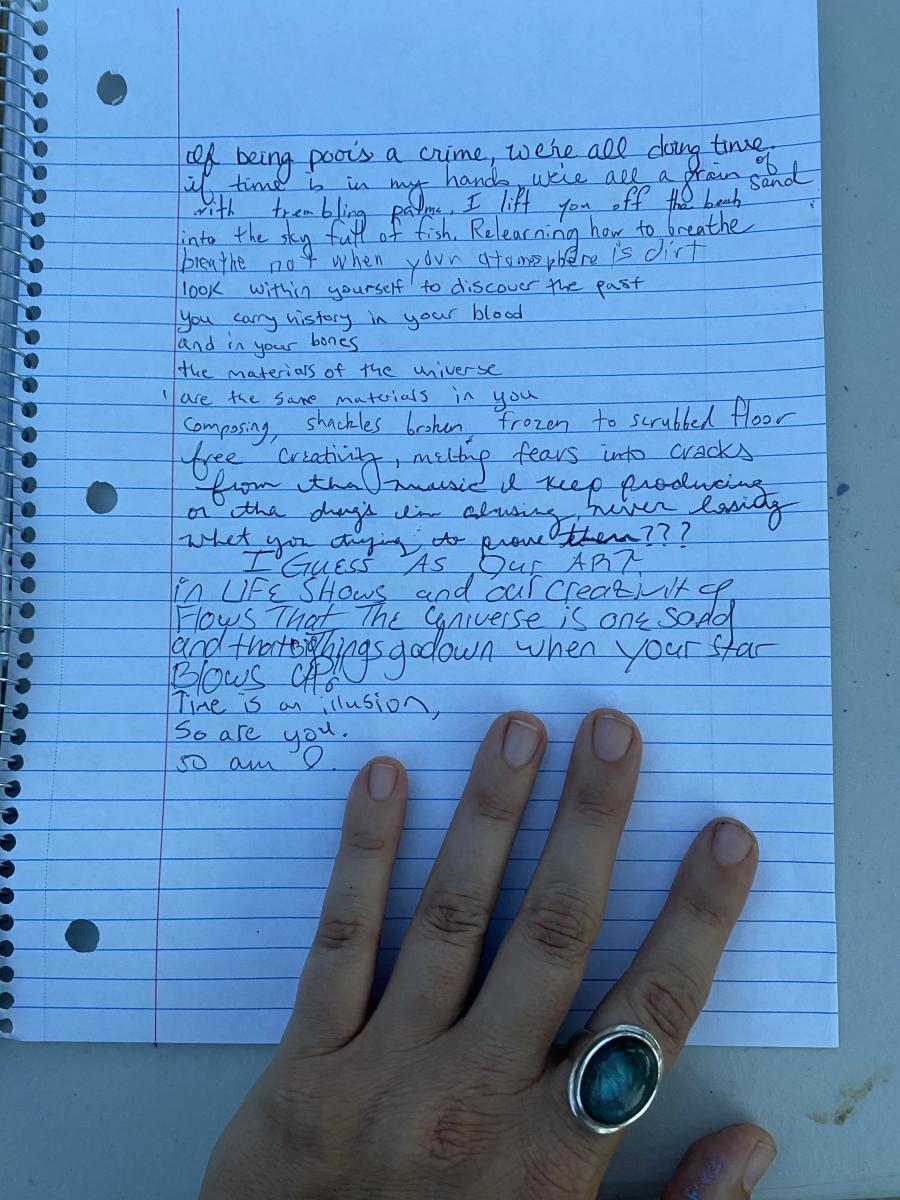 If being poor's a crime, we're all doing time.
if time is in my hands we're all a grain of sand
with trembling palms, I lift you off the
into the sky full of fish. Relearning how to breathe
breathe not when your atsmosphere is dirt
look within yourself to discover the past
you carry history in your blood
and in your bones
the materials of the universe
are the same materials in you
composing, shackles broken, frozen to scrubbed floor
free creativity, melting fears into cracks
from tha music I keep producing
or tha drugs im abusing, never losing
what you trying to prove them???
I GUESS AS Our ART
in LIFE SHOWS and our creativity
Flows That The Universe is one
and things go down when your star
Blows up.
Time is an illusion,
So are you.
so am I.